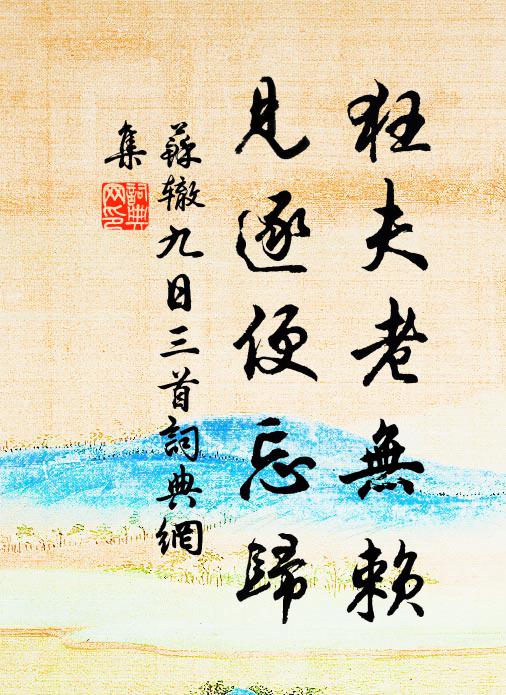 狂夫老無賴
見逐便忘歸
蘇轍九日三首詞典網
集
詞典
网印